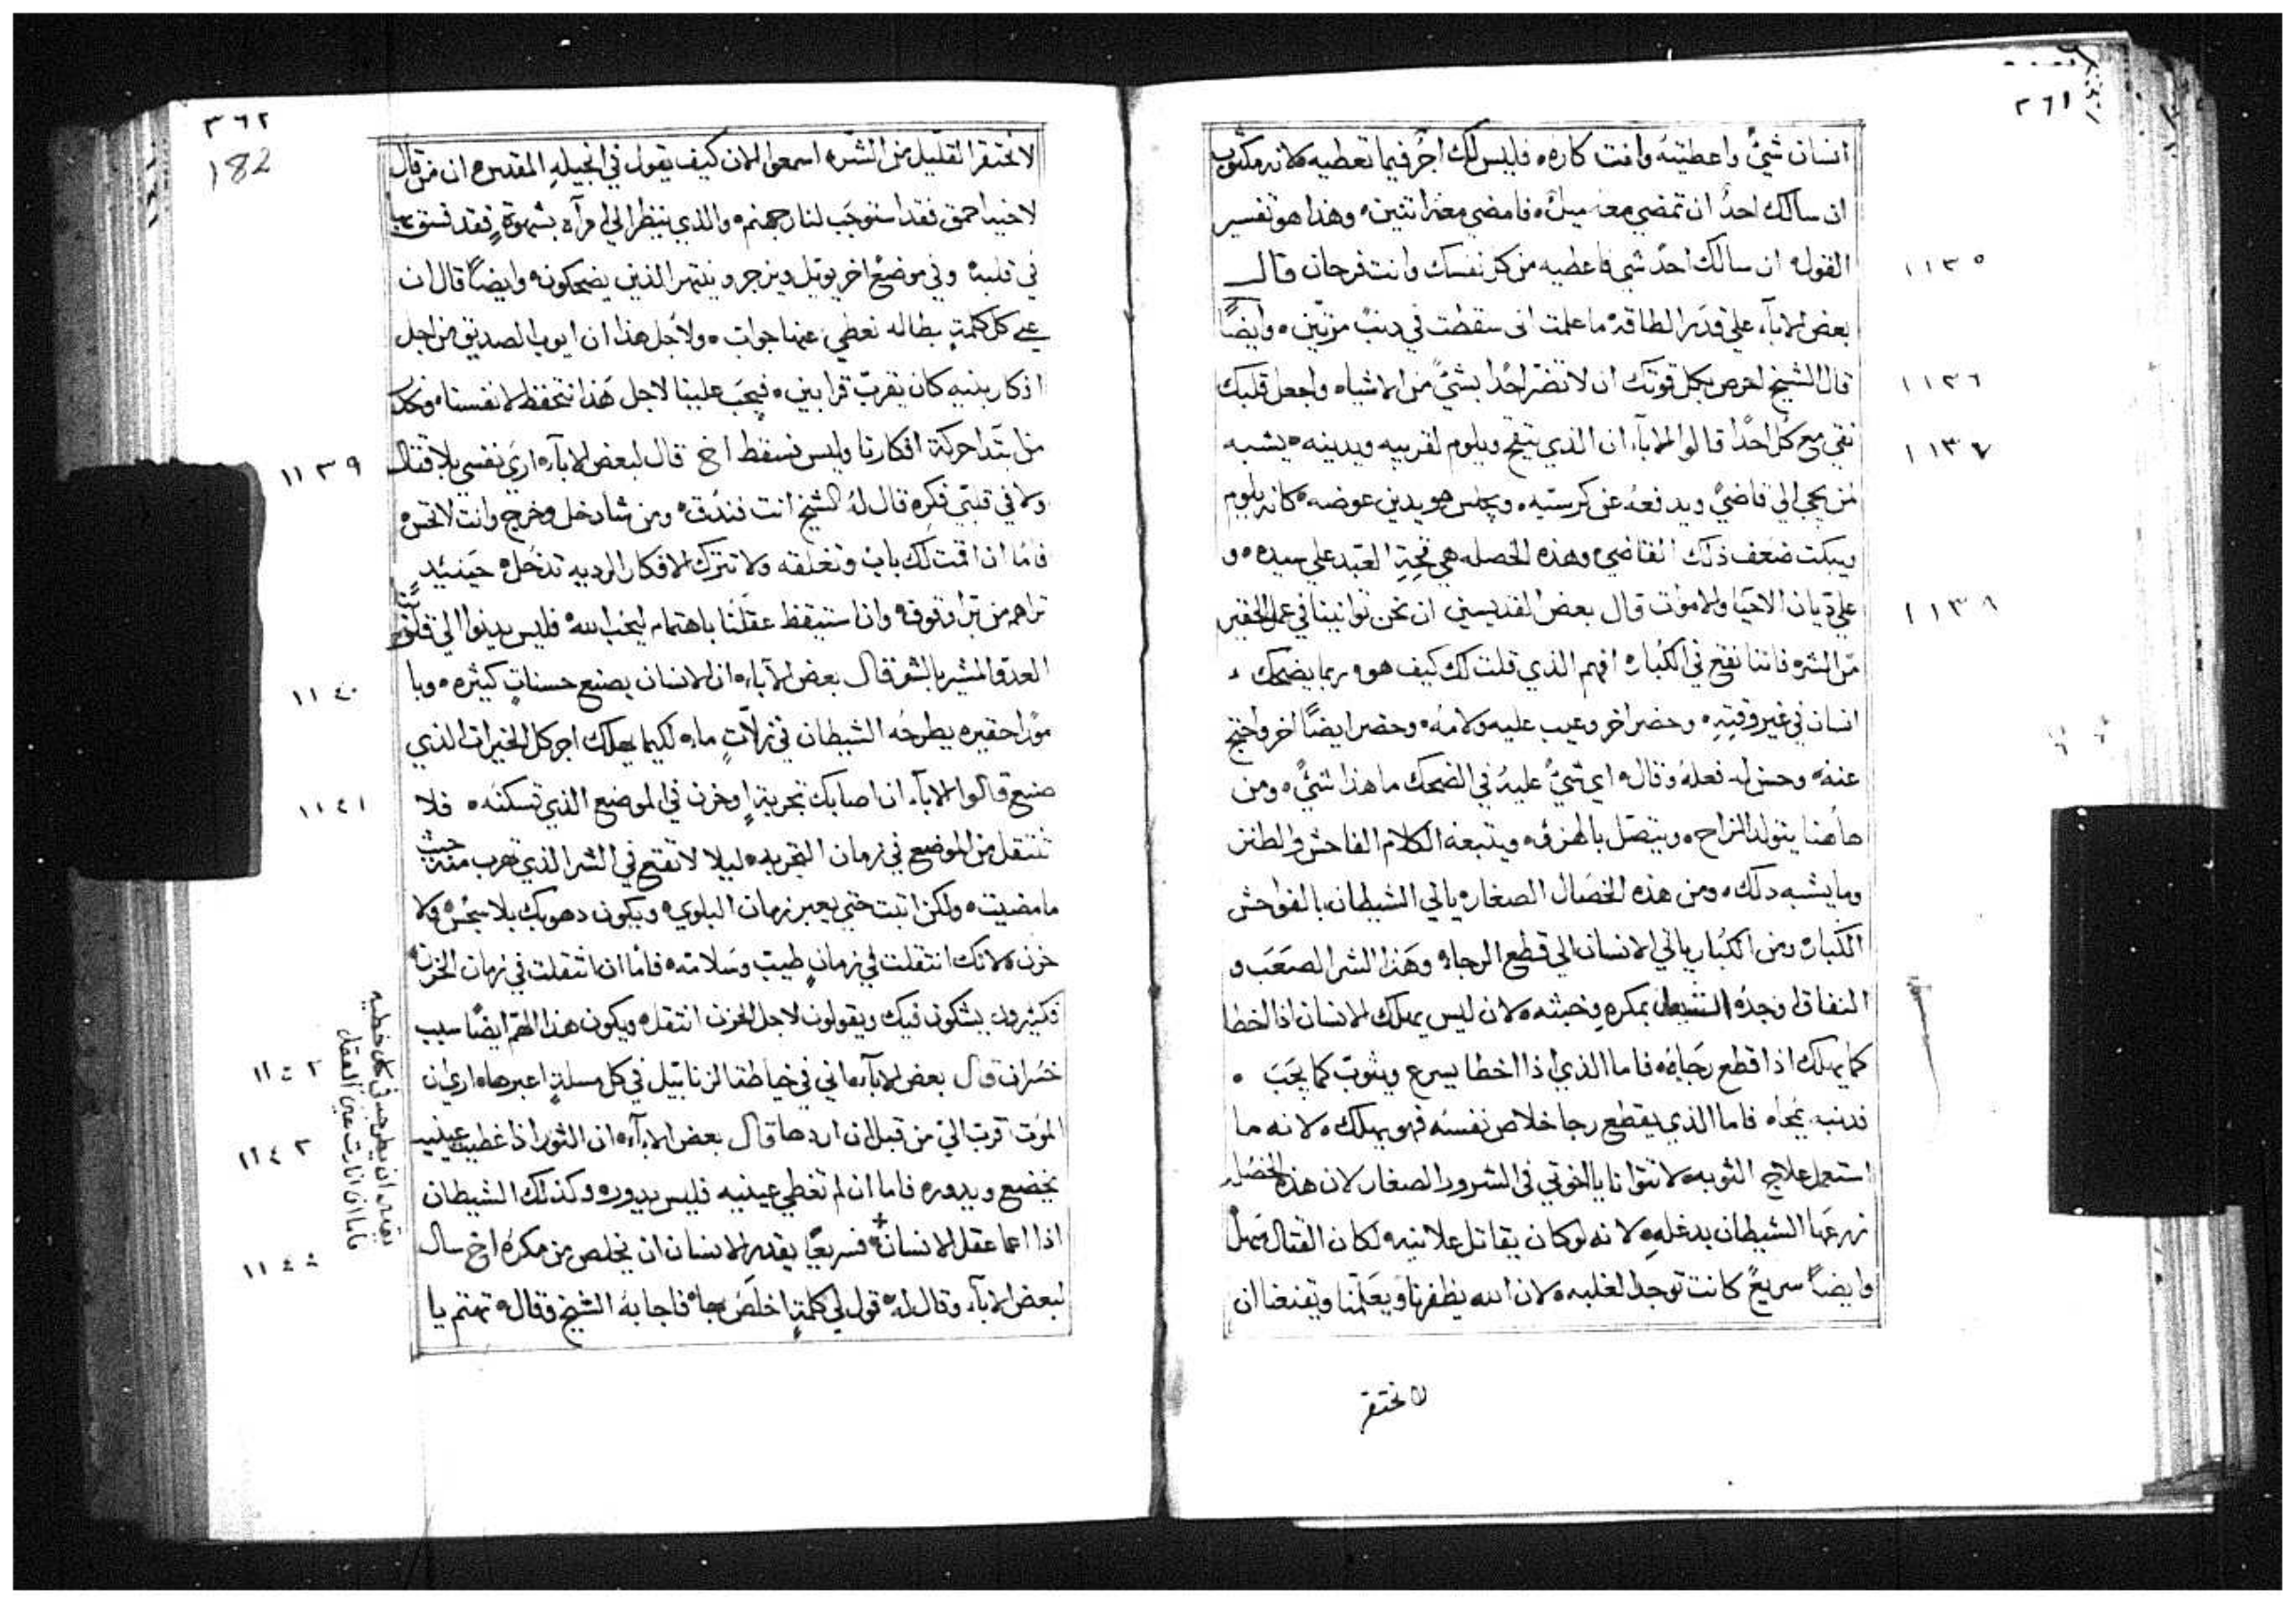 ٣٦١
انسان شيً واعطيته وانت كاره فليس لك اجرٌ فيما تعطيه لانه مكتوب
ان سالك احدٌ ان تمضي معه ميلٌ فامضي معه اثنين وهذا هو تفسير
القول ان سالك احدٌ شي فاعطيه من كل نفسك وانت فرحان قال
١١٣٥
بعض الابآء علي قدر الطاقه ما علمت اني سقطت في دنبٌ مرتين وايضًا
قال الشيخ احرص بكل قوتك ان لا تضر احدًا بشيً من الاشياء واجعل قلبك
١١٣٦
نقي مع كل احدًا قالوا الابآء ان الذي يقبح ويلوم لقريبه ويدينه يشبه
١١٣٧
لمن يجي الي قاضيً ويدفعه عن كرسيه ويجلس هو يدين عوضه كانه يلوم
ويبكت ضعف ذلك القاضي وهذه الخصله هي العبد علي سيده و
علي ديان الاحيا والاموات قال بعض القديسين ان نحن توانينا في عمل الحقير
١١٣٨
من الشر فاننا نقع في الكبار افهم الذي قلت لك كيف هو ربما يضحك
انسان في غير وقته وحضر اخر وعيب عليه ولامه وحضر ايضًا اخر واحتج
عنه وحسن له فعله وقال اي شيً عليه في الضحك ما هذا شيً ومن
هاهنا يتولد المزاح ويتصل بالهزو ويتبعه الكلام الفاحش والطنز
وما يشبه دلك ومن هذه الخصال الصغار ياتي الشيطان بالفواحش
الكبار ومن الكبار ياتي الانسان الي قطع الرجاء وهذا الشر الصعب و
النفاق وجده الشيطان بمكره وخبثه لان ليس يهلك الانسان اذا اخطا
كما يهلك اذا قطع رجاه فاما الذي اذا اخطا يسرع ويتوب كما يجب
فدنبه يمحاه فاما الذي يقطع رجا خلاص نفسه فهو يهلك لانه ما
استعمل علاج التوبه لا تتوانا يا اخوتي في الشرور الصغار لان هذه الخصال
زرعها الشيطان بدغله لانه لو كان يقاتل علانيه لكان القتال سهل
وايضًا سريعً كانت توجد الغلبه لان الله يظفرنا ويعلمنا ويقنعنا ان
لا تحتقر
٣٦٢
182
لا تحتقر القليل من الشر اسمعوا الان كيف يقول في انجيله المقدس ان من قال
لاخيه يا احمق فقد استوجب لنار جهنم والذي ينظر الي امرآه بشهوةٍ فقد فسق بها
في قلبه وفي موضع اخر يوتل ويزجر وينتهر الذين يضحكون وايضًا قال ان
علي كل كلمةٍ بطاله نعطي عنها جواب ولاجل هذا ان ايوب الصديق من اجل
افكار بنيه كان يقرب قرابين فيجب علينا لاجل هذا نتحفظ لانفسنا
من ابتدا حركة افكارنا وليس نسقط اخ قال لبعض الابآء اري نفسي بلا قتال
١١٣٩
ولا في قلبي فكره قال له الشيخ انت فندق ومن شا دخل وخرج وانت لا تحس
فاما ان اقمت لك باب وتغلقه ولا تترك الافكار الرديه تدخل حينئيد
تراهم من برا وقوف وان استيقظ عقلنا باهتمام ليحب الله فليس يدنوا الي قلبنا
العدو المشير بالشر قال بعض الابآء ان الانسان يصنع حسناتٍ كثيره وبا
١١٤٠
مورًا حقيره يطرحه الشيطان في زلاتٍ ما لكيما يهلك اجر كل الخيرات الذي
صنع قالوا الابآء ان اصابك تجربةٍ او حزن في الموضع الذي تسكنه فلا
١١٤١
تنتقل من الموضع في زمان التجربه ليلا لا تقع في الشر الذي تهرب منه حيث
ما مضيت ولكن اتبت حتي يعبر زمان البلوي ويكون دهوبك بلا سجس ولا
حزن لانك انتقلت في زمانٍ طيب وسلامه فاما ان انتقلت في زمان الحزن
فكثيرون يشكون فيك ويقولون لاجل الحزن انتقل ويكون هذا الهم ايضًا سبب
خسران قال بعض الابآء اني في خياطة الزنابيل في كل مسلةٍ اعبرها اري ان
١١٤٢
الموت اقرب الي من قبل ان اردها قال بعض الابآء ان الثور اذا غطيت عينيه
١١٤٣
يخضع ويدور فاما ان لم تغطي عينيه فليس يدور وكذلك الشيطان
اذا اعما عقل الانسان + فسريعًا يقدر الانسان ان يخلص من مكره اخ سال
١١٤٤
لبعض الابآء وقال له قول لي كلمةٍ اخلص بها فاجابه الشيخ وقال تهتم يا
يقدر ان يطرحه في كل خطيه
فاما ان انارت عين العقل